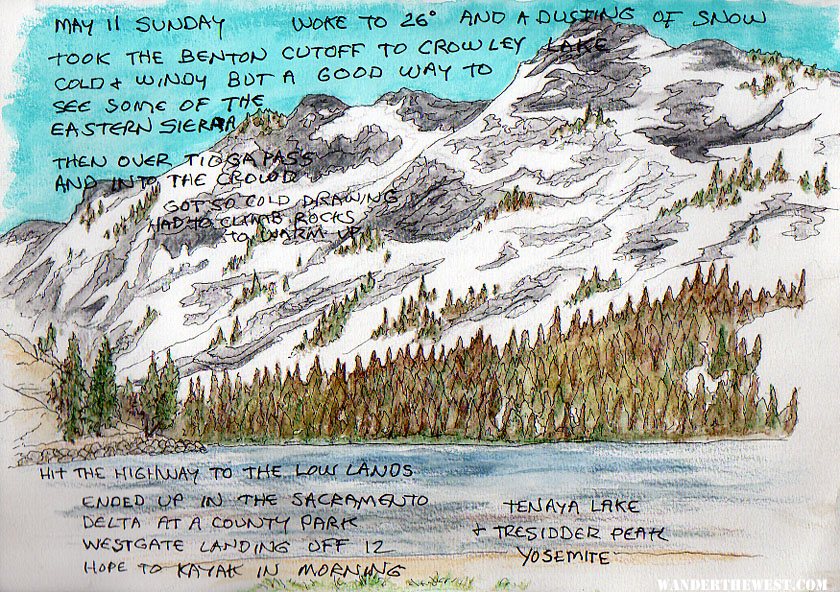 MAY 11 SUNDAY WOKE TO 26° AND A DUSTING OF SNOW
TOOK THE BENTON CUTOFF TO CROWLEY LAKE
COLD & WINDY BUT A GOOD WAY TO
SEE SOME OF THE
EASTERN SIERRA
THEN OVER TIOGA PASS
AND INTO THE CROWD
GOT SO COLD DRAWING
HAD TO CLIMB ROCKS
TO WARM UP
HIT THE HIGHWAY TO THE LOW LANDS
ENDED UP IN THE SACRAMENTO
DELTA AT A COUNTY PARK
WESTGATE LANDING OFF 12
HOPE TO KAYAK IN MORNING
TENAYA LAKE
& TRESIDDER PEAK
YOSEMITE
WANDERTHEWEST.COM